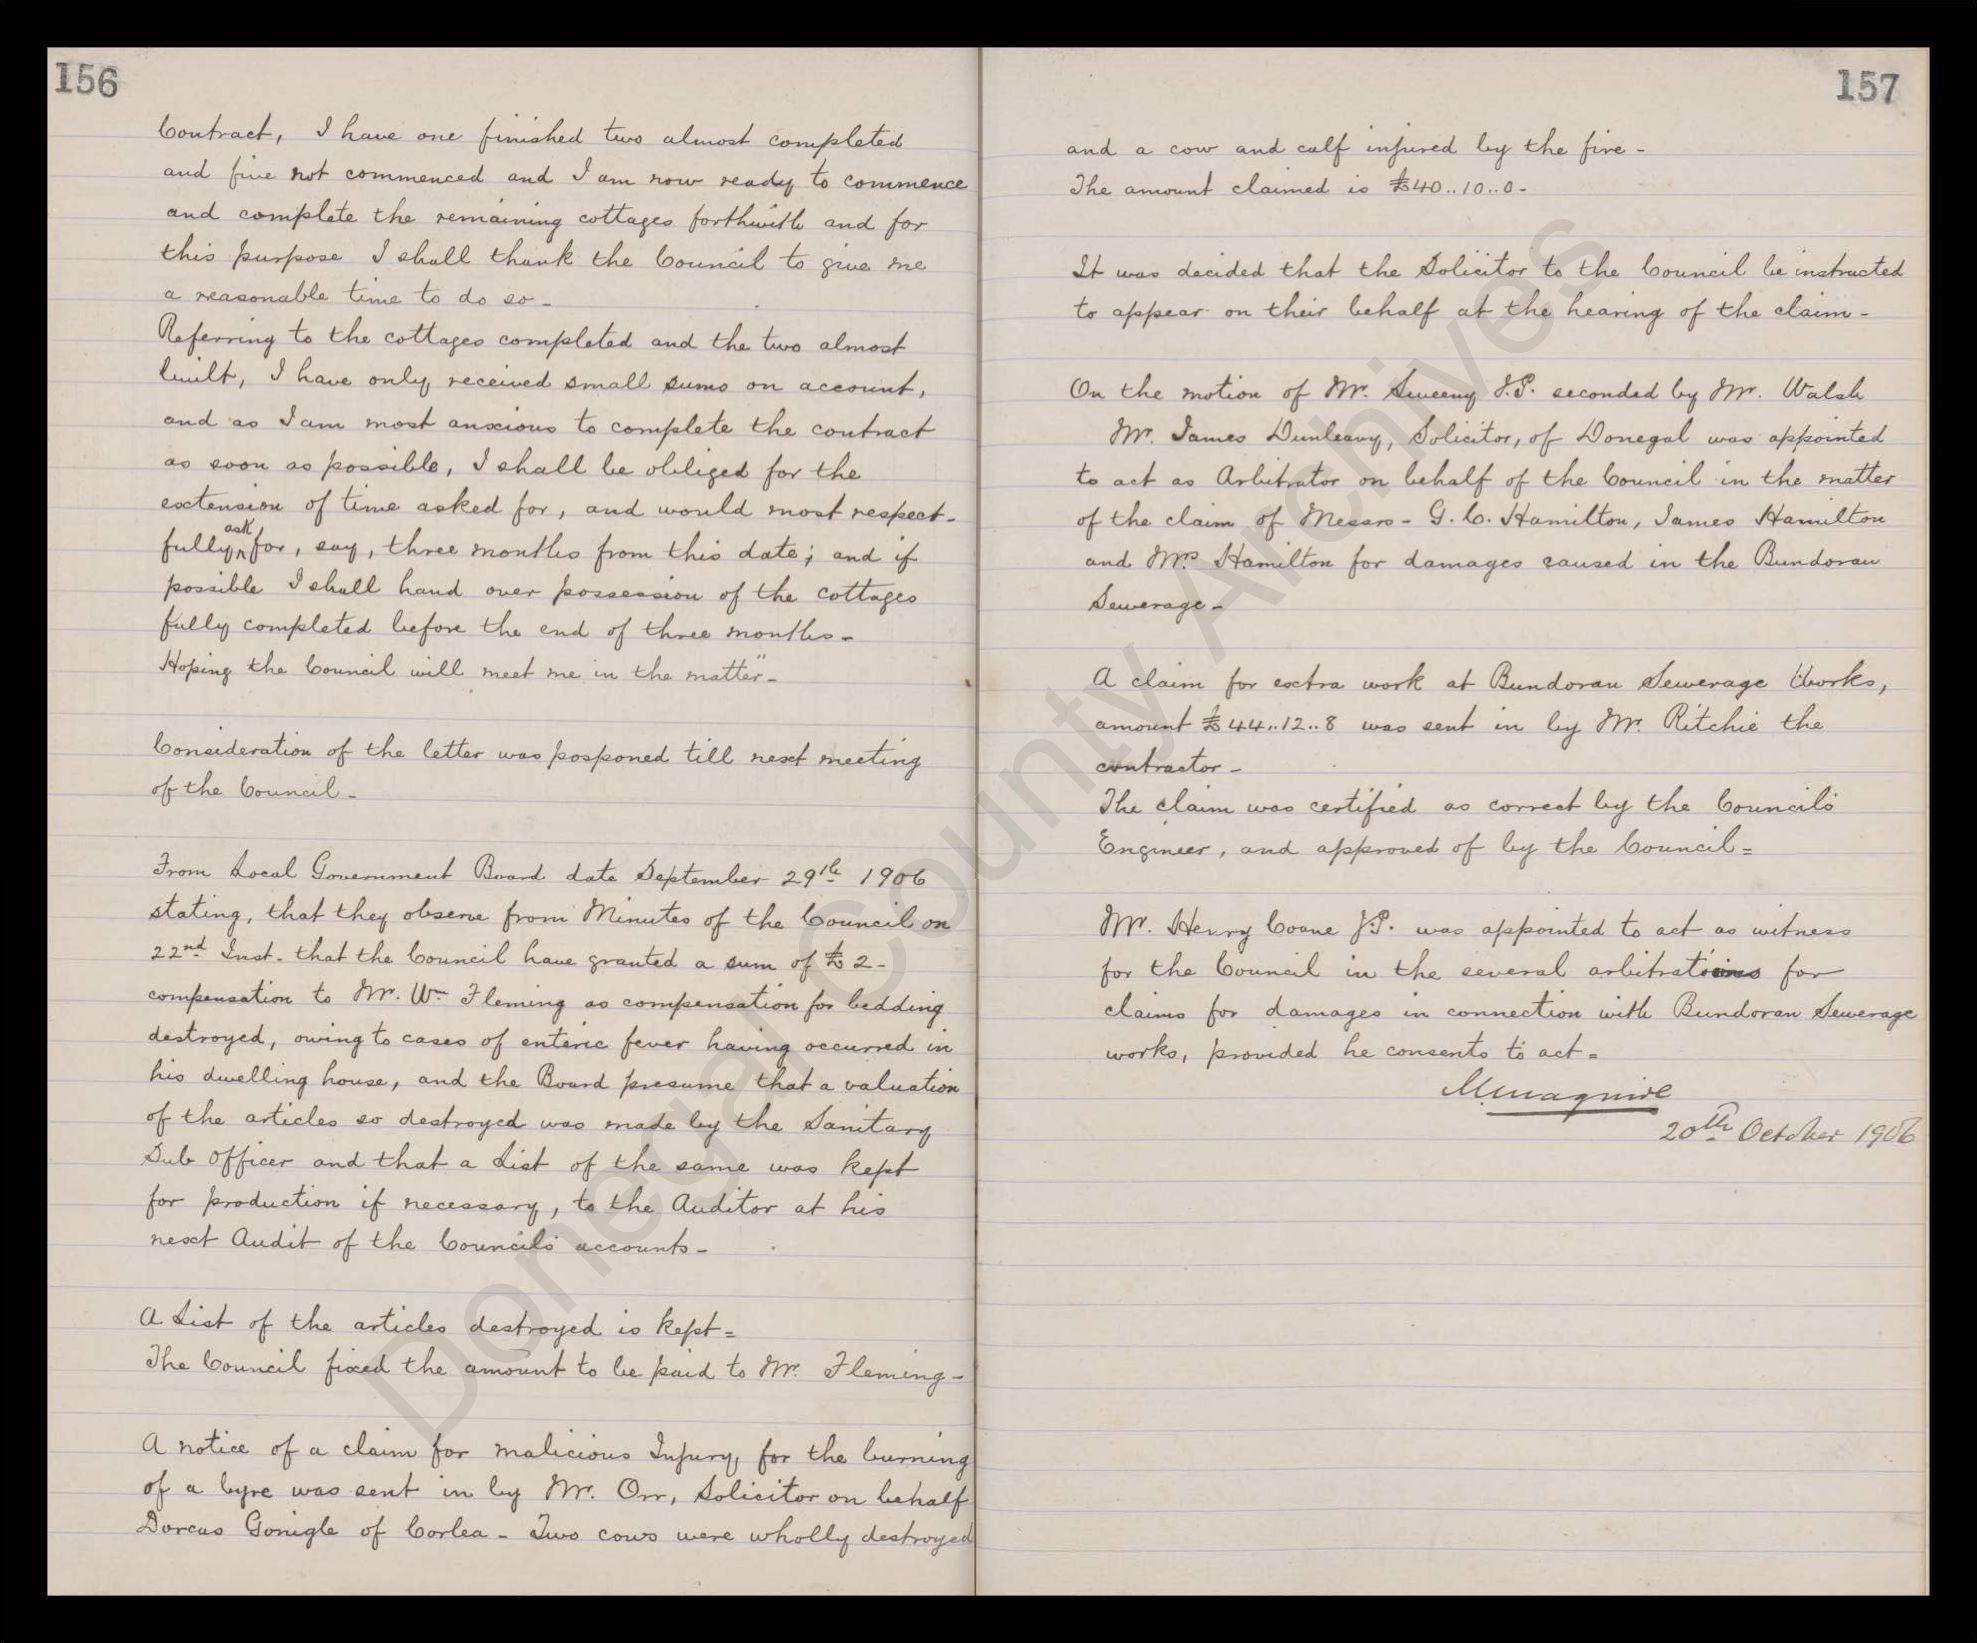 156
Contract, I have one finished two almost completed
and five not commenced and I am now ready to commence
and complete the remaining cottages forthwith and for
this purpose I shall thank the Council to give me
a reasonable time to do so -
Referring to the cottages completed and the two almost
built, I have only received small sums on account,
and as I am most anxious to complete the contract
as soon as possible, I shall be obliged for the
extension of time asked for, and would most respect-
fully ask for, say, three months from this date; and if
possible I shall hand over possession of the cottages
fully completed before the end of three months -
Hoping the Council will meet me in the matter" -
Consideration of the letter was posponed till next meeting
of the Council -
From Local Government Board date September 29th 1906
stating, that they observe from Minutes of the Council on
22nd Inst. that the Council have granted a sum of £2 -
compensation to Mr. Wm Fleming as compensation for bedding
destroyed, owing to cases of enteric fever having occurred in
his dwelling house, and the Board presume that a valuation
of the articles so destroyed was made by the Sanitary
Sub Officer and that a List of the same was kept
for production if necessary, to the Auditor at his
next Audit of the Council's accounts -
A List of the articles destroyed is kept =
The Council fixed the amount to be paid to Mr. Fleming -
A notice of a claim for malicious Injury, for the burning
of a byre was sent in by Mr. Orr, Solicitor on behalf
Dorcas Gonigle of Corlea - Two cows were wholly destroyed
157
and a cow and calf injured by the fire -
The amount claimed is £40..10..0 -
It was decided that the Solicitor to the Council be instructed
to appear on their behalf at the hearing of the claim -
On the motion of Mr. Sweeny J.P. seconded by Mr. Walsh
Mr. James Dunleavy, Solicitor, of Donegal was appointed
to act as Arbitrator on behalf of the Council in the matter
of the claim of Messrs - G. C. Hamilton, James Hamilton
and Mrs Hamilton for damages caused in the Bundoran
Sewerage -
A claim for extra work at Bundoran Sewerage Works,
amount £44..12..8 was sent in by Mr. Ritchie the
contractor -
The claim was certified as correct by the Council's
Engineer, and approved of by the Council =
Mr. Henry Coane J.P. was appointed to act as witness
for the Council in the several arbitrations for
claims for damages in connection with Bundoran Sewerage
works, provided he consents to act =
M Maguire
20th October 1906
Donegal County Archives